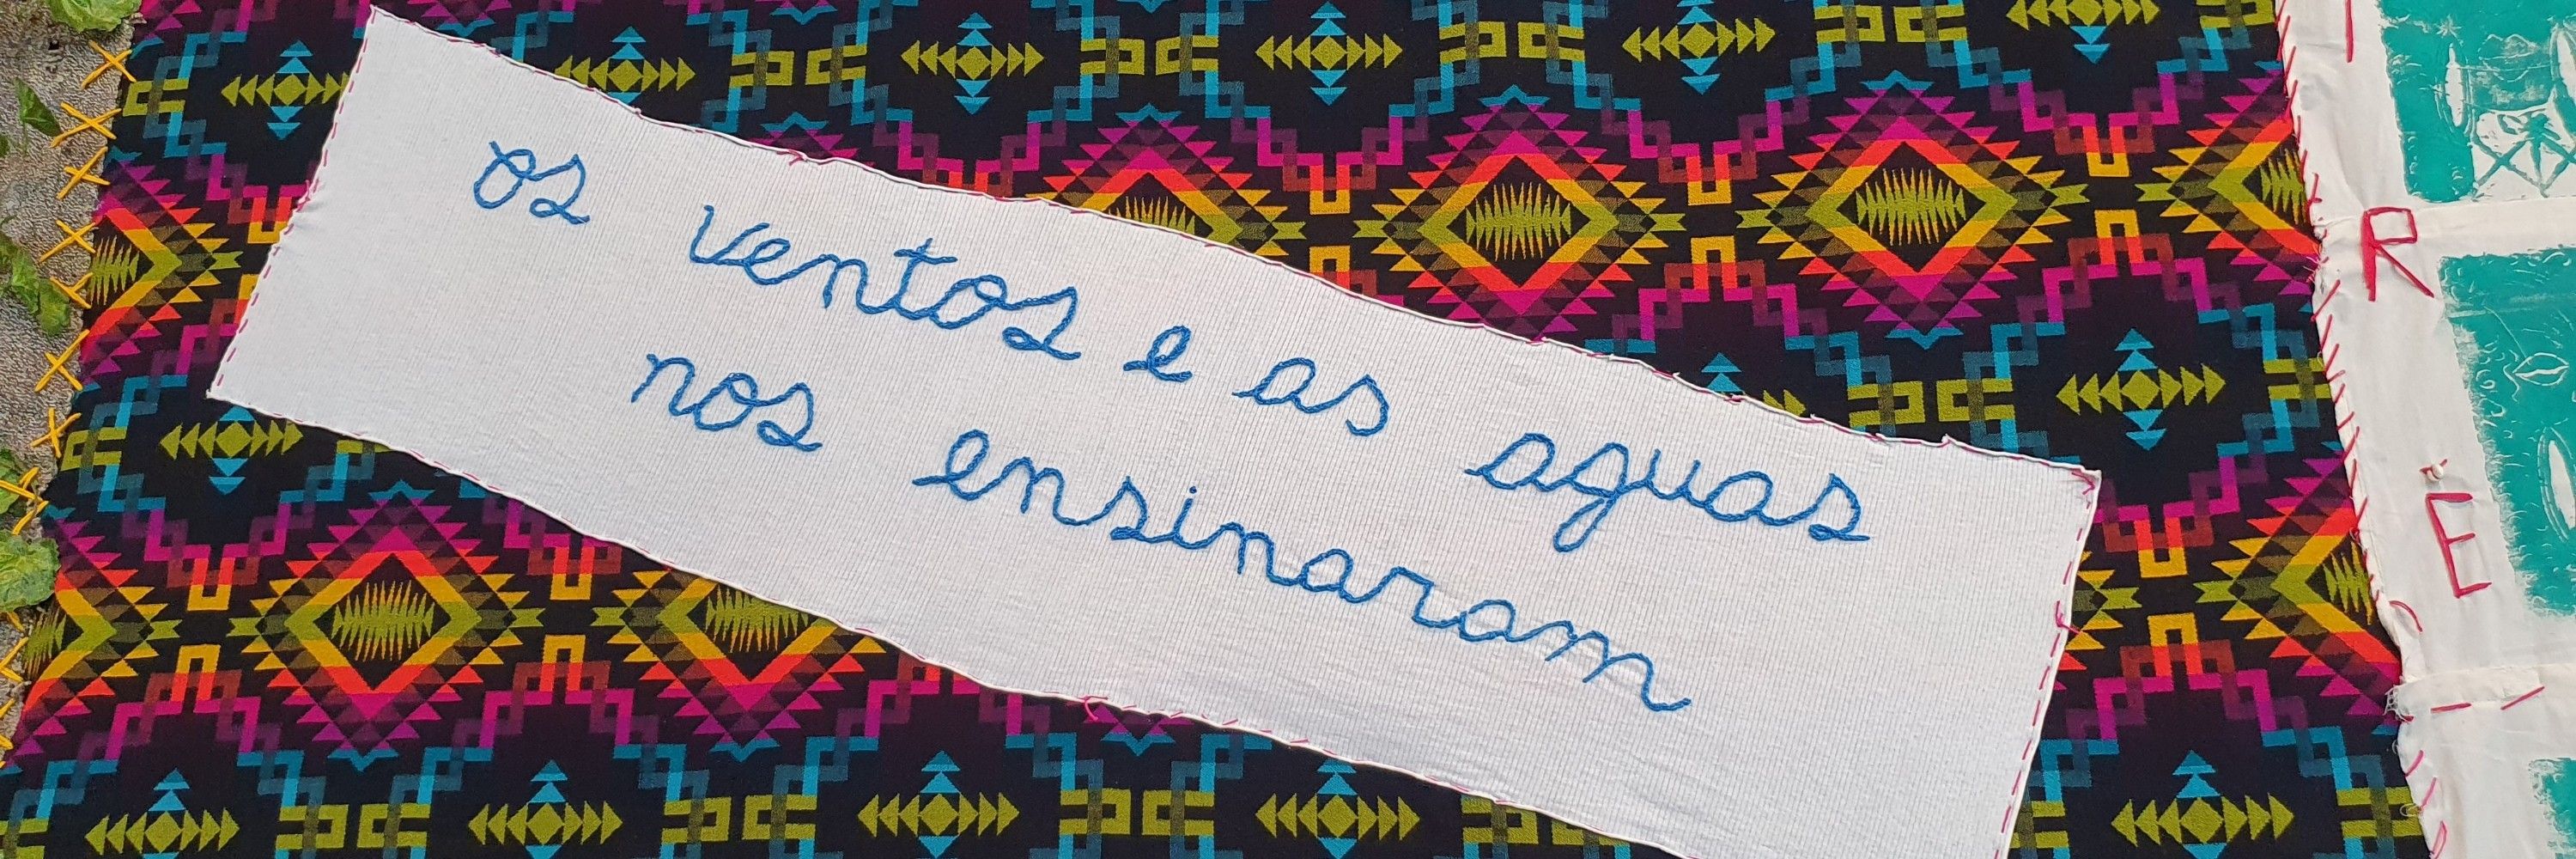 os ventos e as aguas
nos ensinaram
R
E